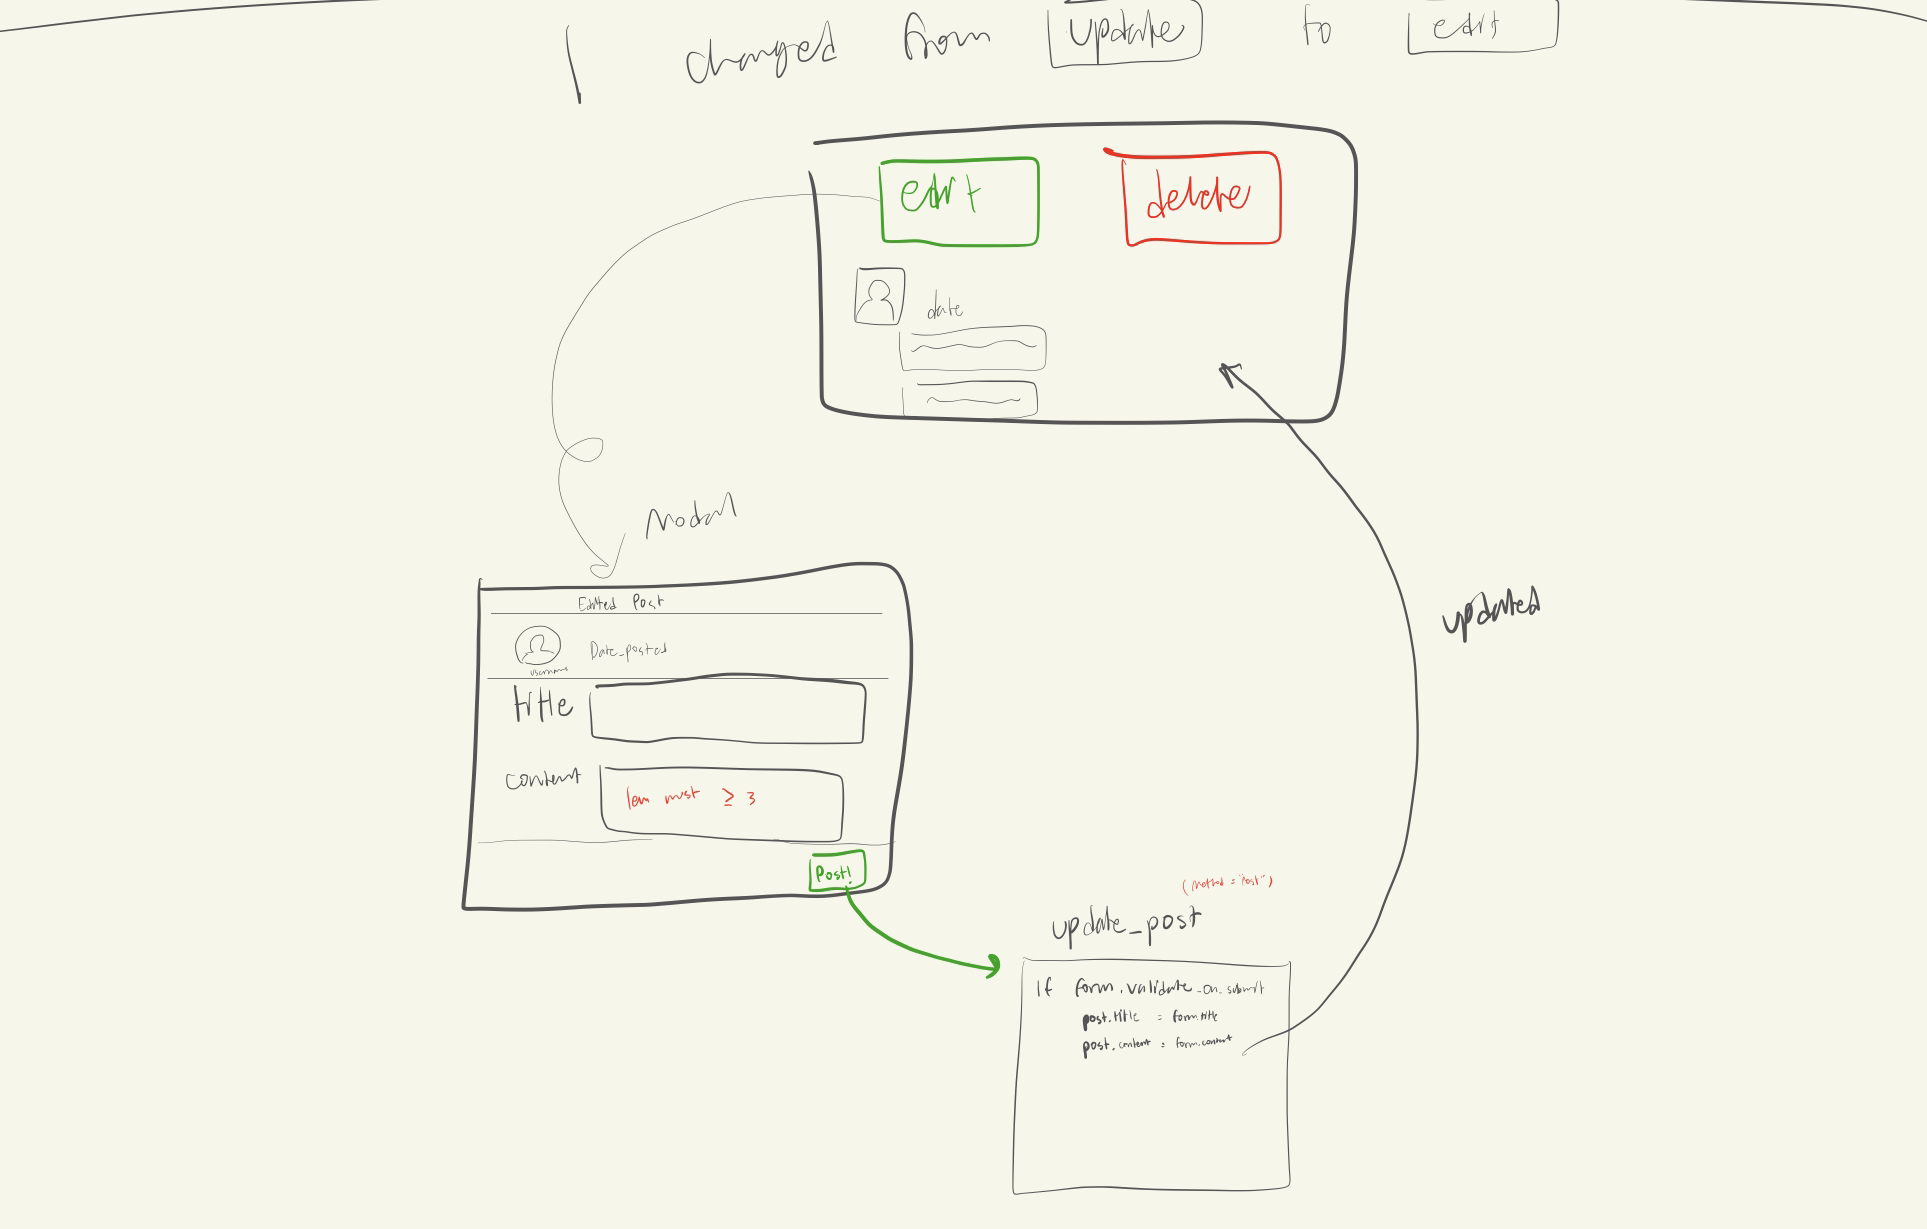 I changed from update to edit
edit
delete
date
Modal
Edited Post
Date_posted
username
title
content
len must ≥ 3
Post!
updated
(Method = "Post")
update_post
If form.validate_on_submit
post.title = form.title
post.content = form.content